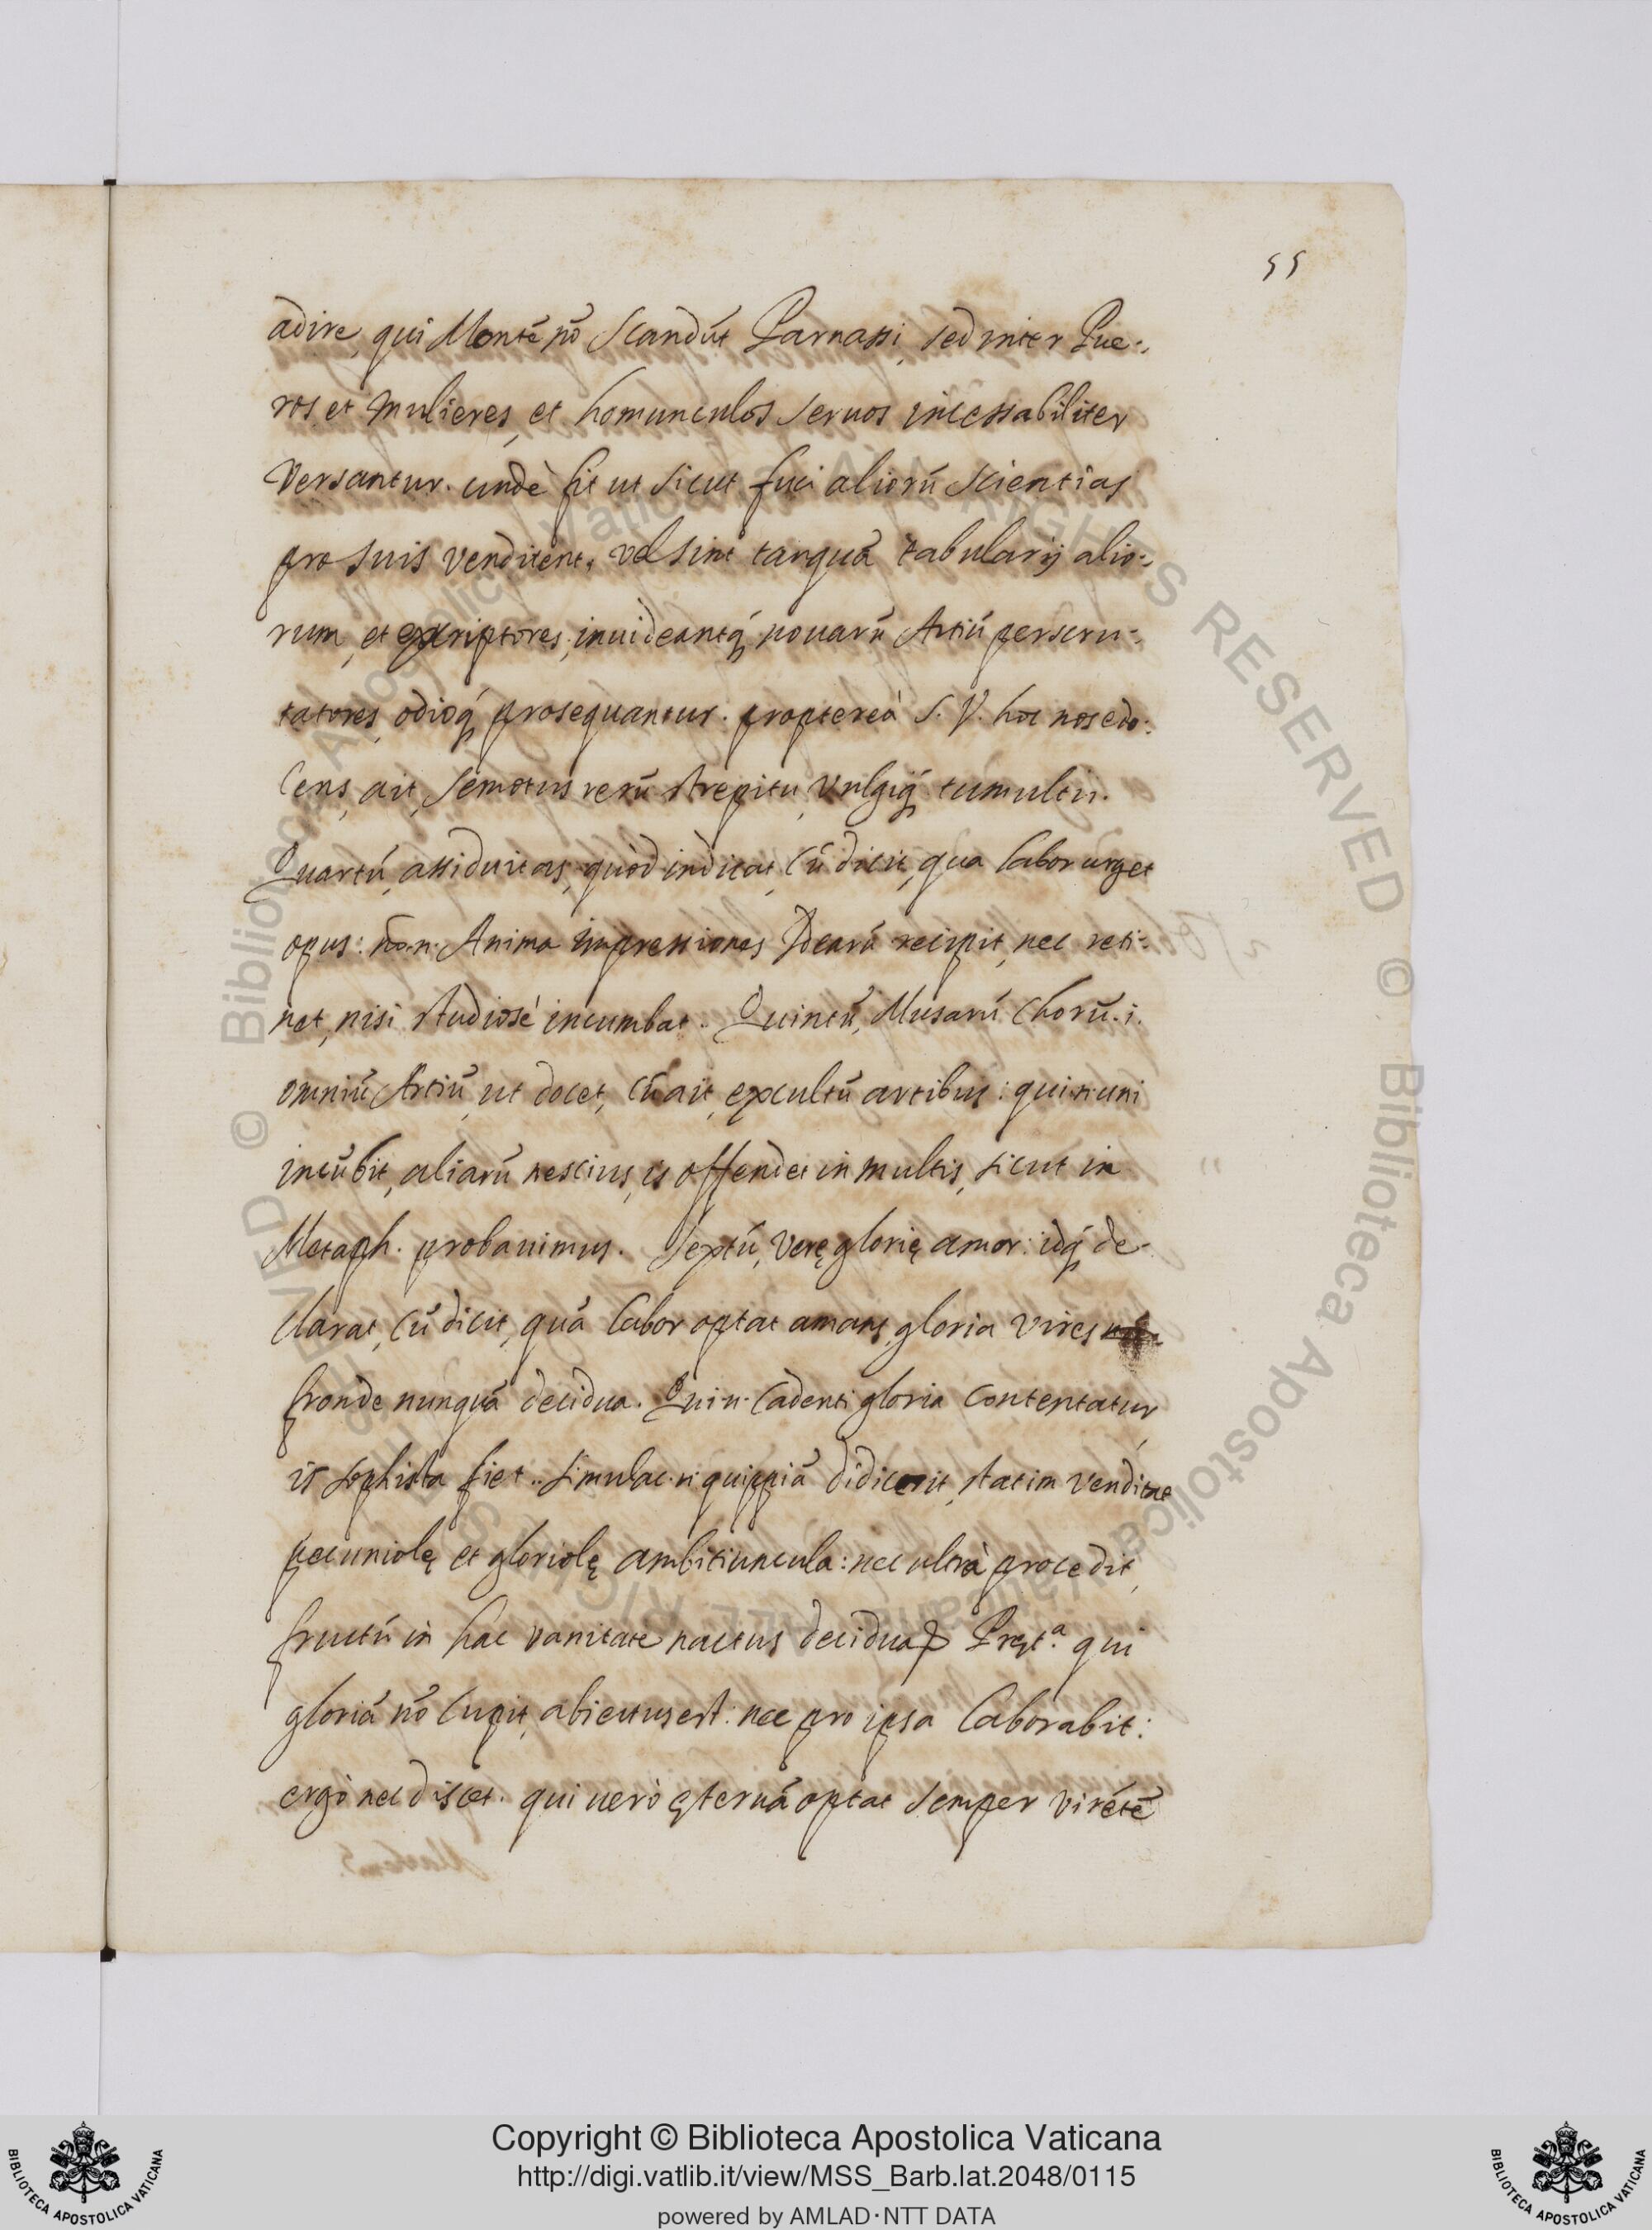 55
adire, qui Montē nō scandūt Parnassi, sed inter Pue-
ros, et mulieres, et homunculos seruos incessabiliter
versantur. undè fit ut sicut fuci aliorū scientias
pro suis venditent, vel sint tanquā tabularij alio-
rum, et exscriptores, inuideantq́ nouarū Artiū perscru-
tatores, odioq́ prosequantur. proptereà S. V. hoc nos edo-
cens, ait, semotus rerū strepitu, vulgiq́ tumultu.
Quartū, assiduitas, quòd indicat, cū dicit, qua labor urget
opus: nō .n. Anima impressiones Idearū recipit, nec reti-
net, nisi studiosè incumbat. Quintū, Musarū chorū .i.
omniū Artiū, ut docet, cū ait, excultū artibus: qui .n. uni
incūbit, aliarū nescius, is offendet in multis, sicut in
Metaph. probauimus. Sextū, verę glorię amor: idq́ de-
clarat, cū dicit, quā labor optat amans, gloria vires
fronde nunquā decidua. Qui .n. cadenti gloria contentatur,
is sophista fiet. simulac .n. quippiā didicerit, statim venditat
pecuniolę et gloriolę ambitiuncula: nec ultrà procedit,
fructū in hac vanitate nactus deciduā. Pręt.ª qui
gloriā nō cupit, abiectus est: nec pro ipsa laborabit:
ergò nec discet. qui uerò ęternā optat semper virētē
Copyright © Biblioteca Apostolica Vaticana
http://digi.vatlib.it/view/MSS_Barb.lat.2048/0115
powered by AMLAD·NTT DATA
BIBLIOTECA APOSTOLICA VATICANA
BIBLIOTECA APOSTOLICA VATICANA